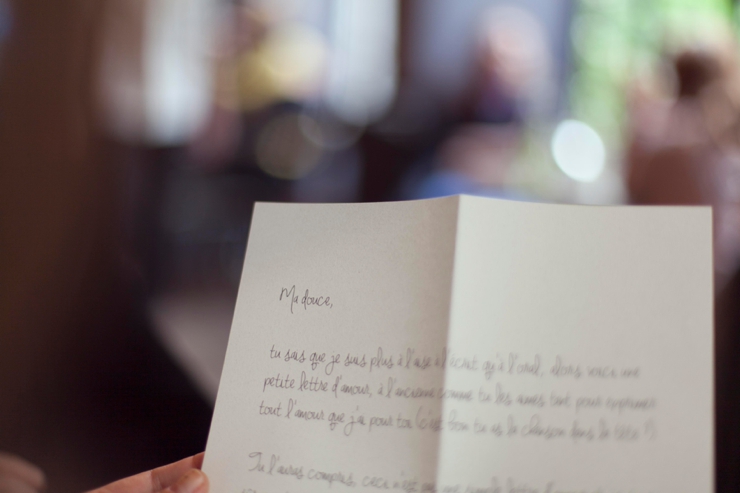 Ma douce,
tu sais que je suis plus à l'aise à l'écrit qu'à l'oral, alors voici une
petite lettre d'amour, à l'ancienne comme tu les aimes tant pour exprimer
tout l'amour que j'ai pour toi (c'est bon tu as la chanson dans la tête !)
Tu l'auras compris, ceci n'est pas une simple lettre d'amour